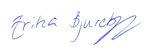 Erika Bjureby